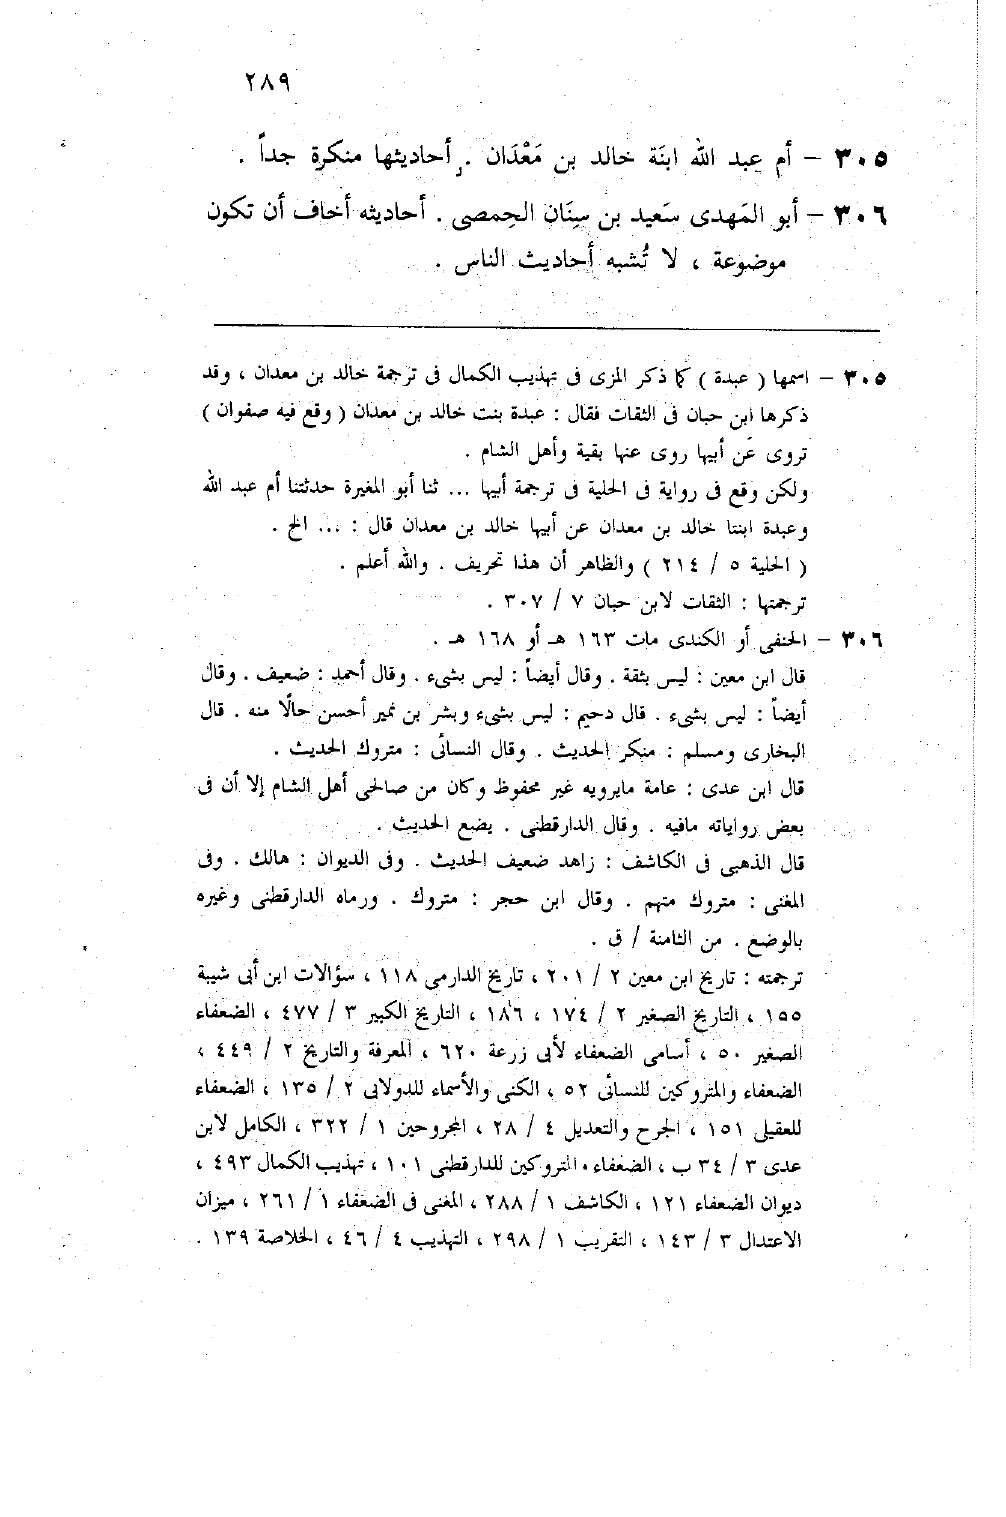 ٢٨٩
٣٠٥ – أم عبد الله ابنَة خالد بن مَعْدَان . أحاديثها منكرة جداً .
٣٠٦ – أبو المَهدى سَعيد بن سِنَان الحِمصى . أحاديثه أخاف أن تكون
موضوعة ، لا تُشبه أحاديث الناس .
٣٠٥ – اسمها ( عبدة ) كما ذكر المزى فى تهذيب الكمال فى ترجمة خالد بن معدان ، وقد
ذكرها ابن حبان فى الثقات فقال : عبدة بنت خالد بن معدان ( وقع فيه صفوان )
تروى عن أبيها روى عنها بقية وأهل الشام .
ولكن وقع فى رواية فى الحلية فى ترجمة أبيها ... ثنا أبو المغيرة حدثتنا أم عبد الله
وعبدة ابنتا خالد بن معدان عن أبيها خالد بن معدان قال : ... الخ .
( الحلية ٥ / ٢١٤ ) والظاهر أن هذا تحريف . والله أعلم .
ترجمتها : الثقات لابن حبان ٧ / ٣٠٧ .
٣٠٦ – الحنفى أو الكندى مات ١٦٣ هـ أو ١٦٨ هـ .
قال ابن معين : ليس بثقة . وقال أيضاً : ليس بشىء . وقال أحمد : ضعيف . وقال
أيضاً : ليس بشىء . قال دحيم : ليس بشىء وبشر بن نمير أحسن حالًا منه . قال
البخارى ومسلم : منكر الحديث . وقال النسائى : متروك الحديث .
قال ابن عدى : عامة مايرويه غير محفوظ وكان من صالحى أهل الشام إلا أن فى
بعض رواياته مافيه . وقال الدارقطنى . يضع الحديث .
قال الذهبى فى الكاشف : زاهد ضعيف الحديث . وفى الديوان : هالك . وفى
المغنى : متروك متهم . وقال ابن حجر : متروك . ورماه الدارقطنى وغيره
بالوضع . من الثامنة / ق .
ترجمته : تاريخ ابن معين ٢ / ٢٠١ ، تاريخ الدارمى ١١٨ ، سؤالات ابن أبى شيبة
١٥٥ ، التاريخ الصغير ٢ / ١٧٤ ، ١٨٦ ، التاريخ الكبير ٣ / ٤٧٧ ، الضعفاء
الصغير ٥٠ ، أسامى الضعفاء لأبى زرعة ٦٢٠ ، المعرفة والتاريخ ٢ / ٤٤٩ ،
الضعفاء والمتروكين للنسائى ٥٢ ، الكنى والأسماء للدولابى ٢ / ١٣٥ ، الضعفاء
للعقيلى ١٥١ ، الجرح والتعديل ٤ / ٢٨ ، المجروحين ١ / ٣٢٢ ، الكامل لابن
عدى ٣ / ٣٤ ب ، الضعفاء والمتروكين للدارقطنى ١٠١ ، تهذيب الكمال ٤٩٣ ،
ديوان الضعفاء ١٢١ ، الكاشف ١ / ٢٨٨ ، المغنى فى الضعفاء ١ / ٢٦١ ، ميزان
الاعتدال ٣ / ١٤٣ ، التقريب ١ / ٢٩٨ ، التهذيب ٤ / ٤٦ ، الخلاصة ١٣٩ .